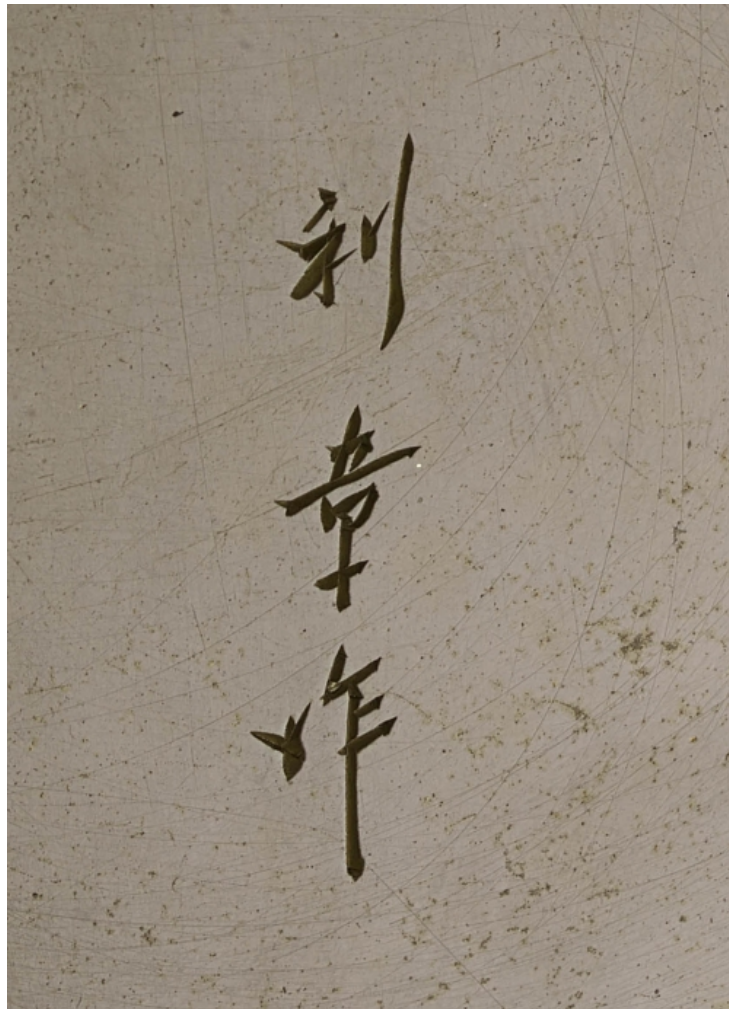 利章作